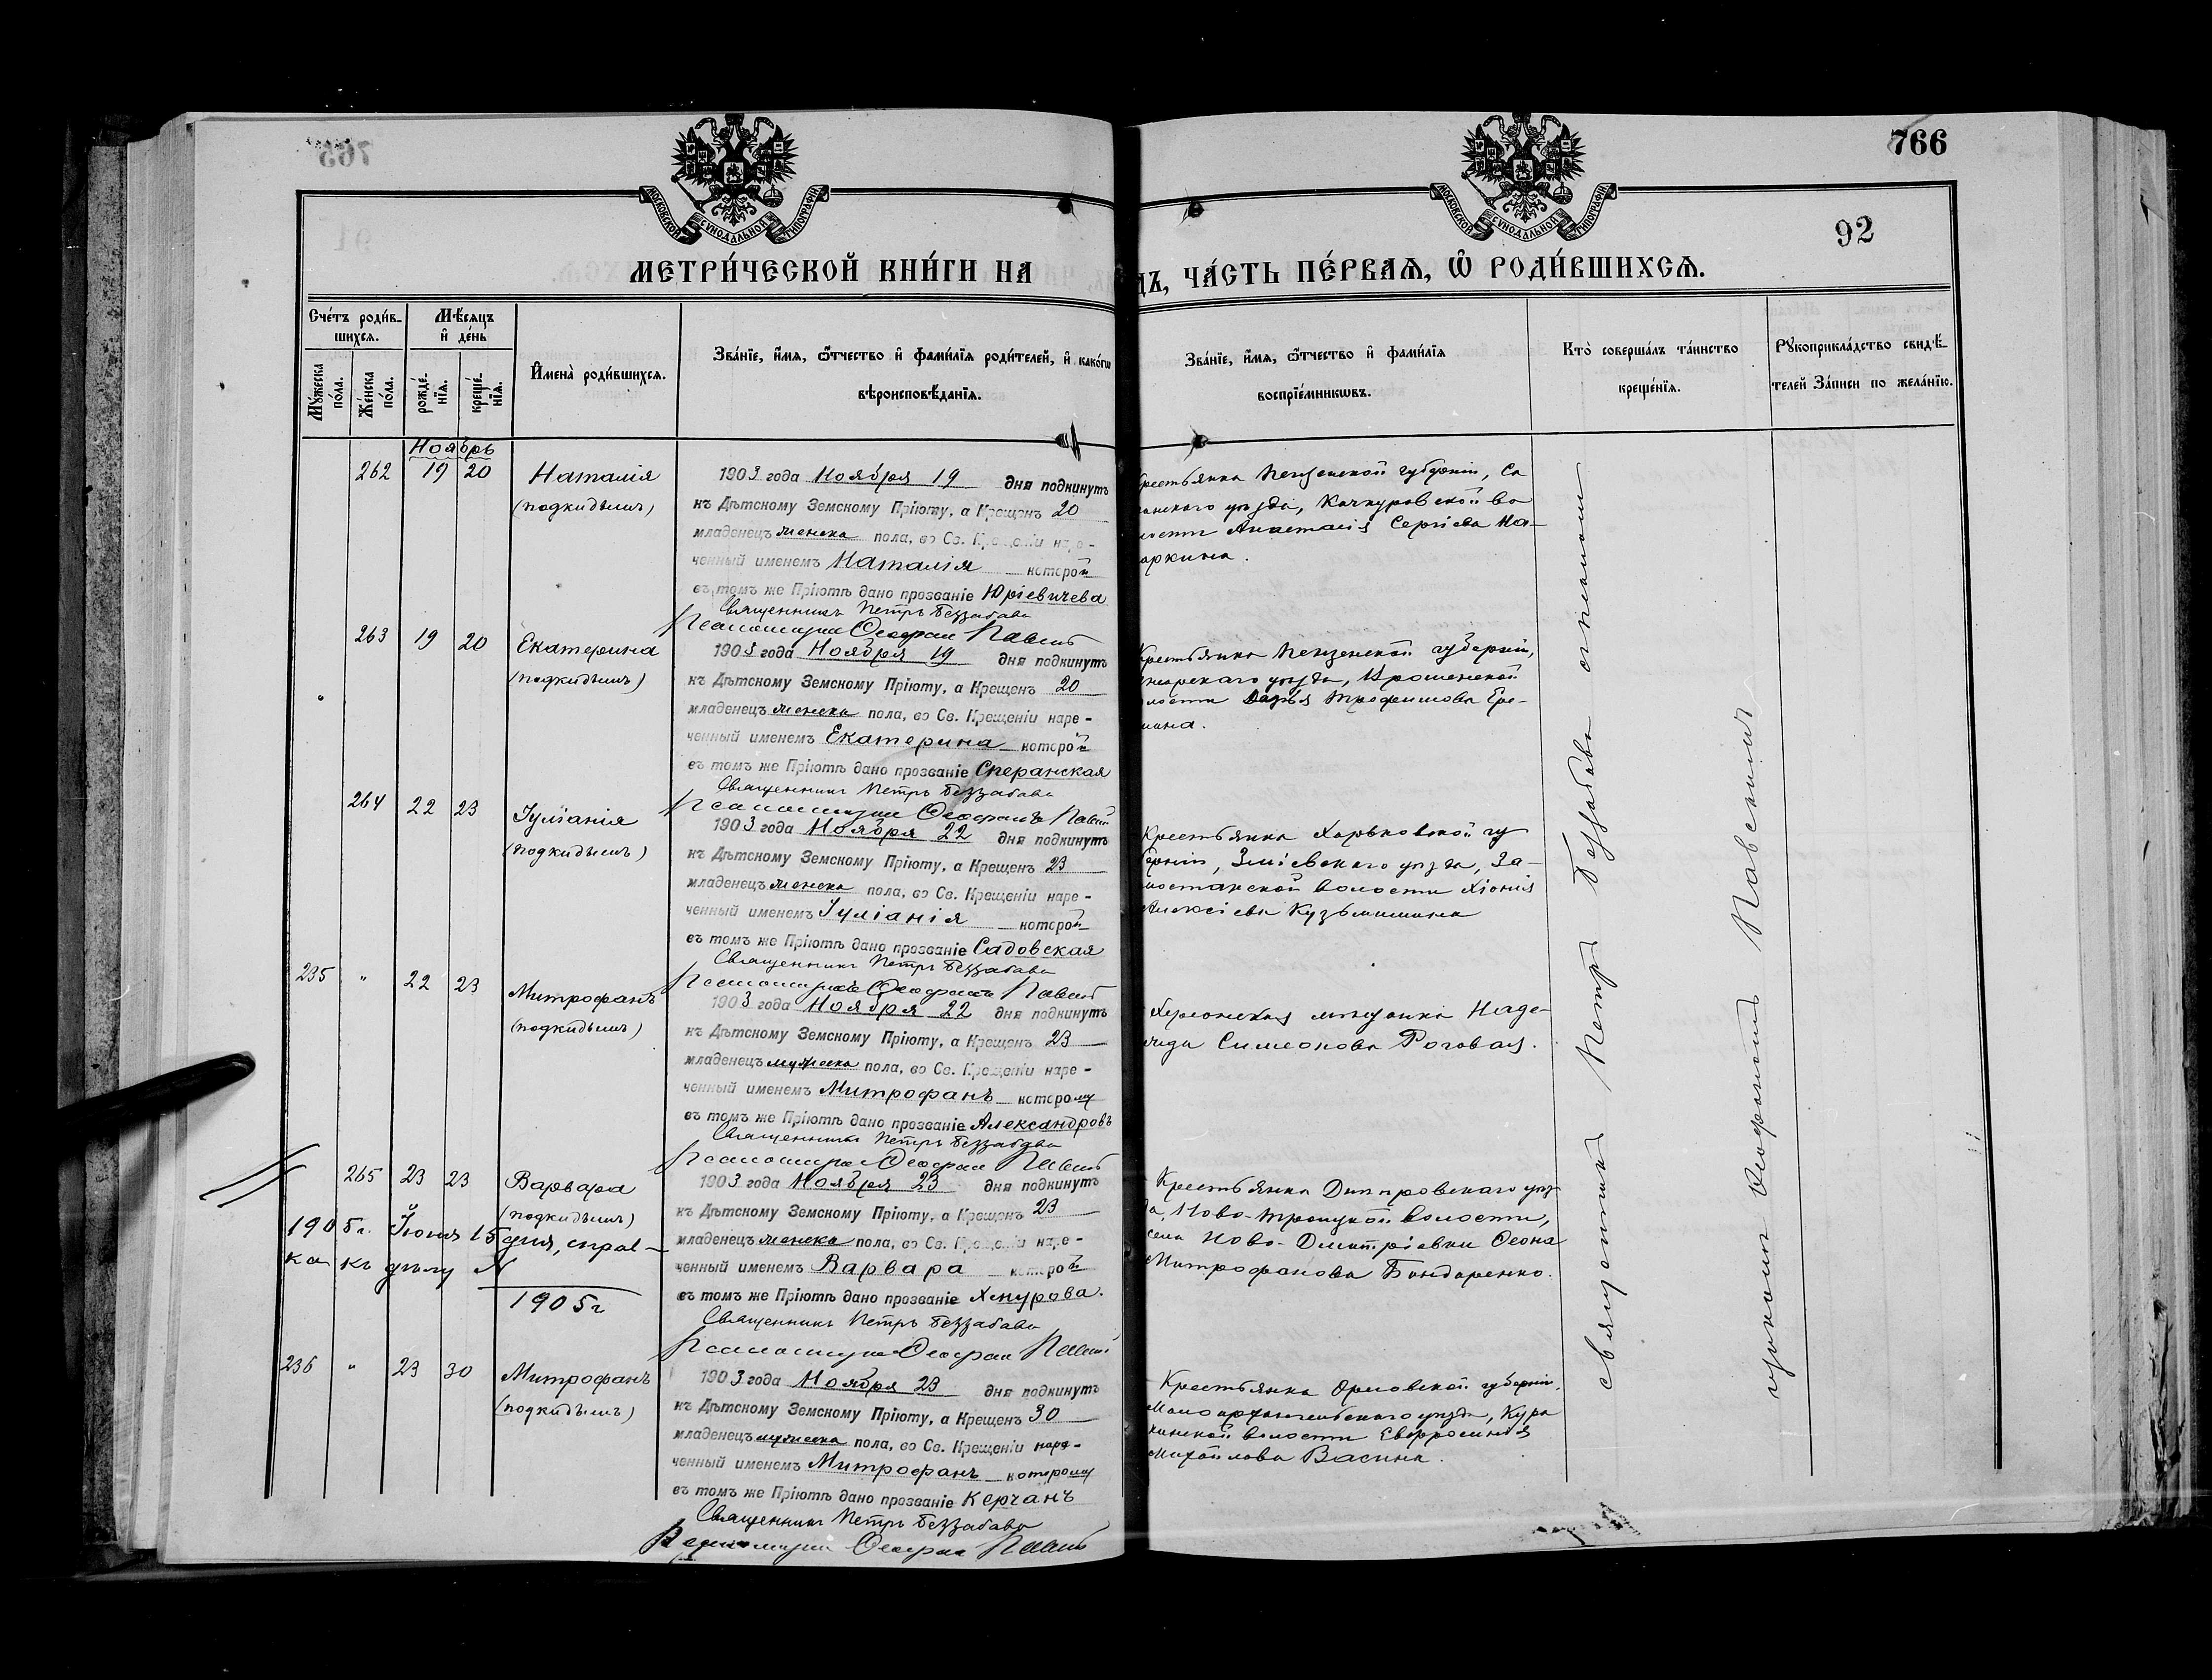 766
92
МОСКОВСКОЙ СѴНОДАЛЬНОЙ ТИПОГРАФІИ
МОСКОВСКОЙ СѴНОДАЛЬНОЙ ТИПОГРАФІИ
МЕТРИ́ЧЕСКОЙ КНИ́ГИ НА
ДЪ, ЧА́СТЬ ПЕ́РВАѦ, Ѽ РОДИ́ВШИХСѦ.
Сче́тъ роди́в-
шихсѧ.
Мѣ́сѧцъ
и҆ де́нь
Мꙋ́жеска
по́ла.
Же́нска
по́ла.
рожде́-
нїѧ.
креще́-
нїѧ.
И҆мена̀ роди́вшихсѧ.
Зва́нїе, и҆́мѧ, ѻ҆́тчество и҆ фами́лїѧ роди́телей, и҆ како́гѡ
вѣроисповѣ́данїѧ.
Зва́нїе, и҆́мѧ, ѻ҆́тчество и҆ фами́лїѧ
воспрїе́мникѡвъ.
Кто̀ соверша́лъ та́инство
креще́нїѧ.
Рꙋкоприкла́дство свидѣ́-
телей За́писи по жела́нїю.
Ноябрь
262 19 20 Наталія
(подкидышъ)
1903 года Ноября 19 дня подкинутъ
къ Дѣтскому Земскому Пріюту, а Крещенъ 20
младенецъ женска пола, во Св. Крещеніи наре-
ченный именемъ Наталія которой
въ томъ же Пріютѣ дано прозваніе Юріевичева
Священникъ Петръ Беззабава
Псаломщикъ Ѳеофанъ
рестьянка Пензенской губерніи, Са
анскаго уѣзда, Качкуровской во
лости Анастасія Сергіева Ма-
аркина.
263 19 20 Екатерина
(подкидышъ)
1903 года Ноября 19 дня подкинутъ
къ Дѣтскому Земскому Пріюту, а Крещенъ 20
младенецъ женска пола, во Св. Крещеніи наре-
ченный именемъ Екатерина которой
въ томъ же Пріютѣ дано прозваніе Сперанская
Священникъ Петръ Беззабава
Псаломщикъ Ѳеофанъ
Крестьянка Пензенской губерніи,
уѣзда,
лости Дарья Трофимова Ере-
мина.
264 22 23 Іуліанія
(подкидышъ)
1903 года Ноября 22 дня подкинутъ
къ Дѣтскому Земскому Пріюту, а Крещенъ 23
младенецъ женска пола, во Св. Крещеніи наре-
ченный именемъ Іуліанія которой
въ томъ же Пріютѣ дано прозваніе Садовская
Священникъ Петръ Беззабава
Псаломщикъ Ѳеофанъ
Крестьянка Харьковской гу
берніи, Зміевскаго уѣзда, За-
волости Хіонія
Алексіева Кузьмишина
235 " 22 23 Митрофанъ
(подкидышъ)
1903 года Ноября 22 дня подкинутъ
къ Дѣтскому Земскому Пріюту, а Крещенъ 23
младенецъ мужеска пола, во Св. Крещеніи наре-
ченный именемъ Митрофанъ которому
въ томъ же Пріютѣ дано прозваніе Александровъ
Священникъ Петръ Беззабава
Псаломщикъ Ѳеофанъ
Херсонская мѣщанка Наде-
жда Симеонова Роговая.
265 23 23 Варвара
(подкидышъ)
1905 г. Іюня 15 дня, справ-
ка къ дѣлу N
1905 г
1903 года Ноября 23 дня подкинутъ
къ Дѣтскому Земскому Пріюту, а Крещенъ 23
младенецъ женска пола, во Св. Крещеніи наре-
ченный именемъ Варвара которой
въ томъ же Пріютѣ дано прозваніе Хмурова.
Священникъ Петръ Беззабава
Псаломщикъ Ѳеофанъ
Крестьянка Днѣпровскаго уѣз
да, Ново-Троицкой волости,
села Ново-Дмитріевки Ѳеона
Митрофанова Бондаренко.
236 " 23 30 Митрофанъ
(подкидышъ)
1903 года Ноября 23 дня подкинутъ
къ Дѣтскому Земскому Пріюту, а Крещенъ 30
младенецъ мужеска пола, во Св. Крещеніи наре-
ченный именемъ Митрофанъ которому
въ томъ же Пріютѣ дано прозваніе Керчанъ
Священникъ Петръ Беззабава
Псаломщикъ Ѳеофанъ
Крестьянка Орловской губерніи,
Малоархангельскаго уѣзда, Кура
кинской волости Евфросинія
Михайлова Васина.
священникъ Петръ Беззабава съ псалом
щикомъ Ѳеофаномъ